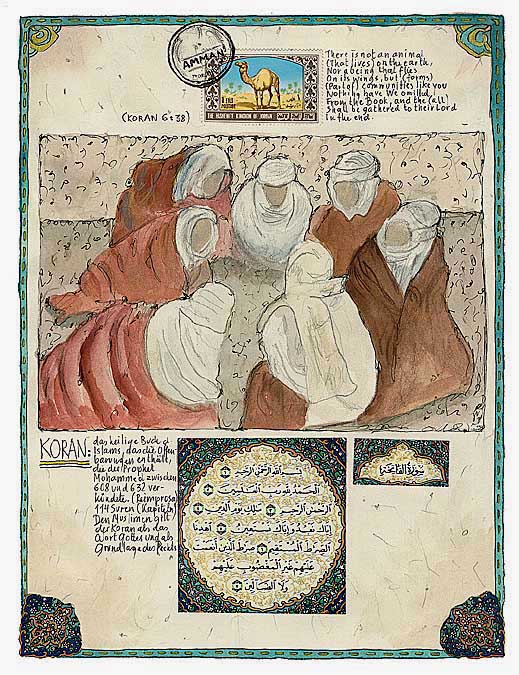 AMMAN
THE HASHEMITE KINGDOM OF JORDAN
There is not an animal
(That lives) on the earth,
Nor a being that flies
On its winds, but (forms)
(Part of) communities like you
Nothing have We omitted
From the Book, and the (all)
Shall be gathered to their Lord
In the end.
(KORAN 6:38)
KORAN:
das heilige Buch d
Islams, das die Offen-
barungen enthält,
die der Prophet
Mohammed zwischen
608 und 632 ver-
kündete. (Reimprosa)
114 Suren (Kapitel)
Den Muslimen gilt
der Koran als das
Wort Gottes und als
Grundlage des Rechts
بسم الله الرحمن الرحيم
الحمد لله رب العالمين
الرحمن الرحيم ملك يوم الدين
إياك نعبد وإياك نستعين اهدنا
الصراط المستقيم صراط الذين أنعمت
عليهم غير المغضوب عليهم
ولا الضالين
سورة الفاتحة